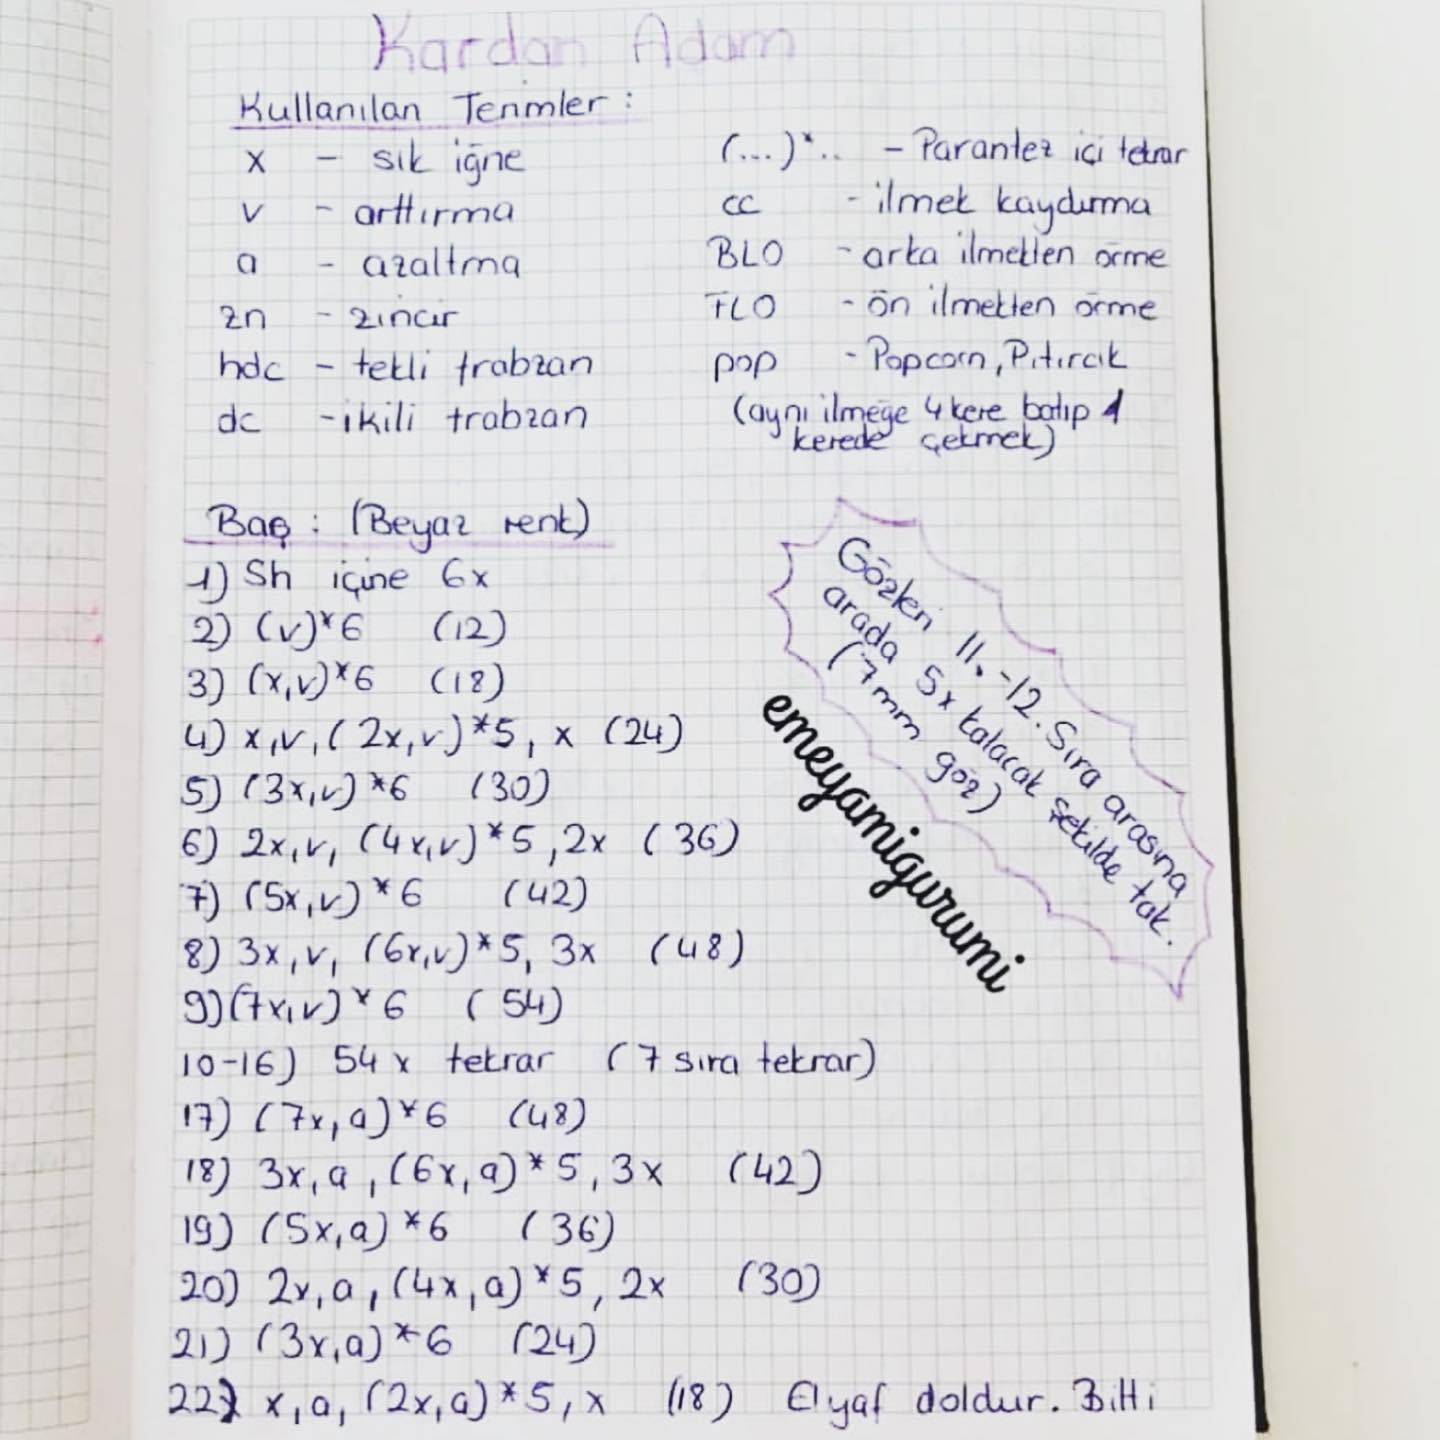 Kardan Adam
Kullanılan Terimler :
x - sık iğne
v - arttırma
a - azaltma
zn - zincir
hdc - tekli trabzan
dc - ikili trabzan
(...)*.. - Parantez içi tekrar
cc - ilmek kaydırma
BLO - arka ilmekten örme
FLO - ön ilmekten örme
pop - Popcorn, Pıtırcık
(aynı ilmeğe 4 kere batıp 1
kerede çekmek)
Baş : (Beyaz renk)
1) Sh içine 6x
2) (v)*6 (12)
3) (x,v)*6 (18)
4) x,v,(2x,v)*5, x (24)
5) (3x,v)*6 (30)
6) 2x,v, (4x,v)*5, 2x (36)
7) (5x,v)*6 (42)
8) 3x,v, (6x,v)*5, 3x (48)
9) (7x,v)*6 (54)
10-16) 54x tekrar (7 sıra tekrar)
17) (7x,a)*6 (48)
18) 3x,a,(6x,a)*5, 3x (42)
19) (5x,a)*6 (36)
20) 2x,a,(4x,a)*5, 2x (30)
21) (3x,a)*6 (24)
22) x,a,(2x,a)*5, x (18) Elyaf doldur. Bitti
Gözleri 11.-12. Sıra arasına
arada 5x kalacak şekilde tak.
(7mm göz)
emeyamigurumi